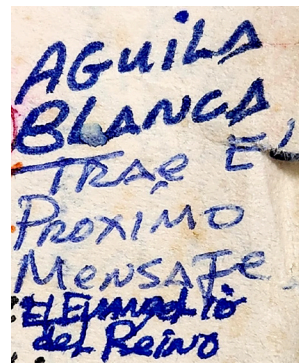 AGUiLA
BLANCA
TRAe El
PROXIMO
MeNSAJe.
El EvANgelio
del Reino